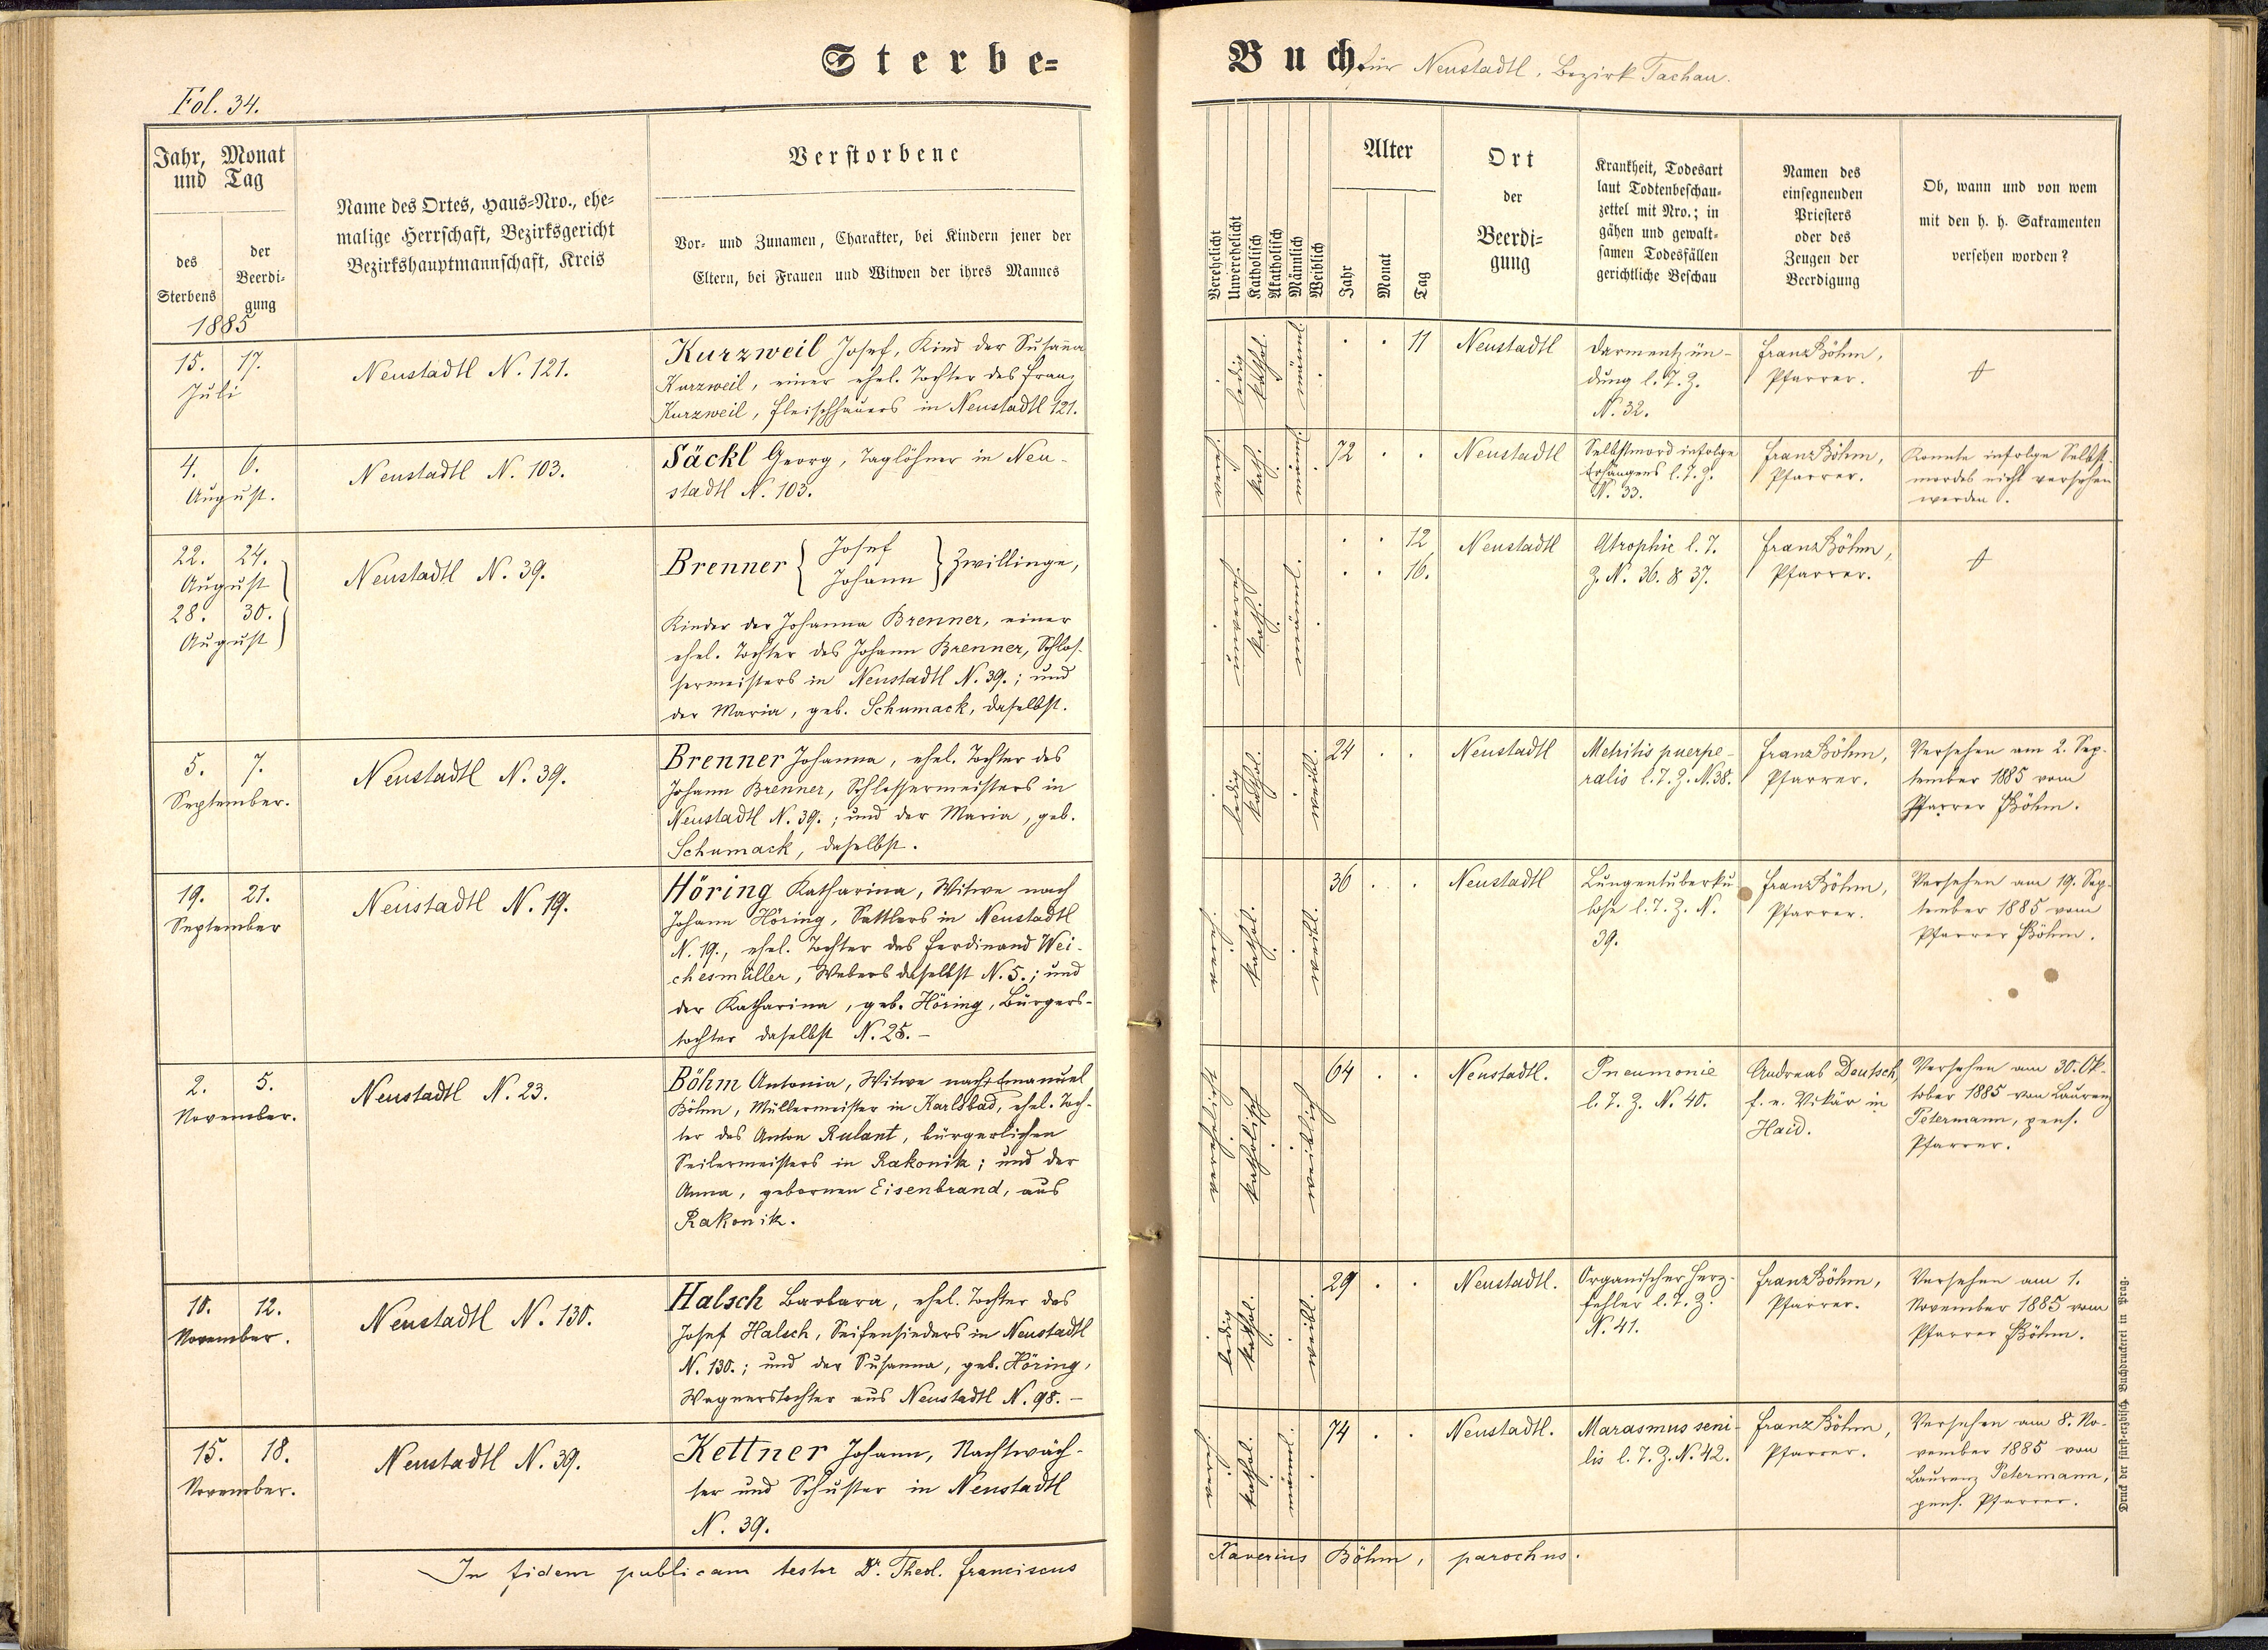 Sterbe=
Buch für Neustadtl, Bezirk Tachau.
Fol. 34.
Jahr, Monat
und Tag
des
Sterbens
der
Beerdi-
gung
1885
Name des Ortes, Haus=Nro., ehe=
malige Herrschaft, Bezirksgericht
Bezirkshauptmannschaft, Kreis
Verstorbene
Vor- und Zunamen, Charakter, bei Kindern jener der
Eltern, bei Frauen und Witwen der ihres Mannes
Verehelicht
Unverehelicht
Katholisch
Akatholisch
Männlich
Weiblich
Alter
Jahr
Monat
Tag
Ort
der
Beerdi=
gung
Krankheit, Todesart
laut Todtenbeschau=
zettel mit Nro.; in
gähen und gewalt=
samen Todesfällen
gerichtliche Beschau
Namen des
einsegnenden
Priesters
oder des
Zeugen der
Beerdigung
Ob, wann und von wem
mit den h. h. Sakramenten
versehen worden?
15. 17.
Juli
Neustadtl N. 121.
Kurzweil Josef, Kind der Susanna
Kurzweil, einer ehel. Tochter des Franz
Kurzweil, Fleischhauers in Neustadtl 121.
ledig
kathol.
männl.
11
Neustadtl
Darmentzün-
dung l. T. Z.
N. 32.
Franz Böhm,
Pfarrer.
4. 6.
August.
Neustadtl N. 103.
Säckl Georg, Taglöhner in Neu-
stadtl N. 103.
kath.
männl.
72
Neustadtl
Selbstmord infolge
Erhängens l. T. Z.
N. 33.
Franz Böhm,
Pfarrer.
Konnte infolge Selbst-
mordes nicht versehen
werden.
22. 24.
August
28. 30.
August
Neustadtl N. 39.
Brenner { Josef
Johann } Zwillinge,
Kinder der Johanna Brenner, einer
ehel. Tochter des Johann Brenner, Schlos-
sermeisters in Neustadtl N. 39.; und
der Maria, geb. Schumack, daselbst.
unvereh.
kath.
männl.
12
16.
Neustadtl
Atrophie l. T.
Z. N. 36. & 37.
Franz Böhm,
Pfarrer.
5. 7.
September.
Neustadtl N. 39.
Brenner Johanna, ehel. Tochter des
Johann Brenner, Schlossermeisters in
Neustadtl N. 39.; und der Maria, geb.
Schumack, daselbst.
ledig
kathol.
weibl.
24
Neustadtl
Metritis puerpe-
ralis l. T. Z. N. 38.
Franz Böhm,
Pfarrer.
Versehen am 2. Sep-
tember 1885 vom
Pfarrer Böhm.
19. 21.
September
Neustadtl N. 19.
Höring Katharina, Witwe nach
Johann Höring, Sattlers in Neustadtl
N. 19., ehel. Tochter des Ferdinand Wei-
chesmüller, Webers daselbst N. 5.; und
der Katharina, geb. Höring, Bürgers-
tochter daselbst N. 25.-
kathol.
weibl.
36
Neustadtl
Lungentuberku-
lose l. T. Z. N.
39.
Franz Böhm,
Pfarrer.
Versehen am 19. Sep-
tember 1885 vom
Pfarrer Böhm.
2. 5.
November.
Neustadtl N. 23.
Böhm Antonia, Witwe nach Emanuel
Böhm, Müllermeister in Karlsbad, ehel. Toch-
ter des Anton Rulant, bürgerlichen
Seilermeisters in Rakonik; und der
Anna, gebornen Eisenbrand, aus
Rakonik.
katholisch
weiblich
64
Neustadtl.
Pneumonie
l. T. Z. N. 40.
Andreas Deutsch,
f. e. Vikär in
Haid.
Versehen am 30. Ok-
tober 1885 von Laurenz
Petermann, pens.
Pfarrer.
10. 12.
November.
Neustadtl N. 130.
Halsch Barbara, ehel. Tochter des
Josef Halsch, Seifensieders in Neustadtl
N. 130.; und der Susanna, geb. Höring,
Wagnerstochter aus Neustadtl N. 98.-
ledig
kathol.
weibl.
29
Neustadtl.
Organischer Herz-
fehler l. T. Z.
N. 41.
Franz Böhm,
Pfarrer.
Versehen am 1.
November 1885 vom
Pfarrer Böhm.
15. 18.
November.
Neustadtl N. 39.
Kettner Johann, Nachtwäch-
ter und Schuster in Neustadtl
N. 39.
kathol.
männl.
74
Neustadtl.
Marasmus seni-
lis l. T. Z. N. 42.
Franz Böhm,
Pfarrer.
Versehen am 8. No-
vember 1885 von
Laurenz Petermann,
pens. Pfarrer.
In fidem publicam testor Dr. Theol. Franciscus
Xaverius Böhm, parochus.
Druck der fürst-erzbisch. Buchdruckerei in Prag.